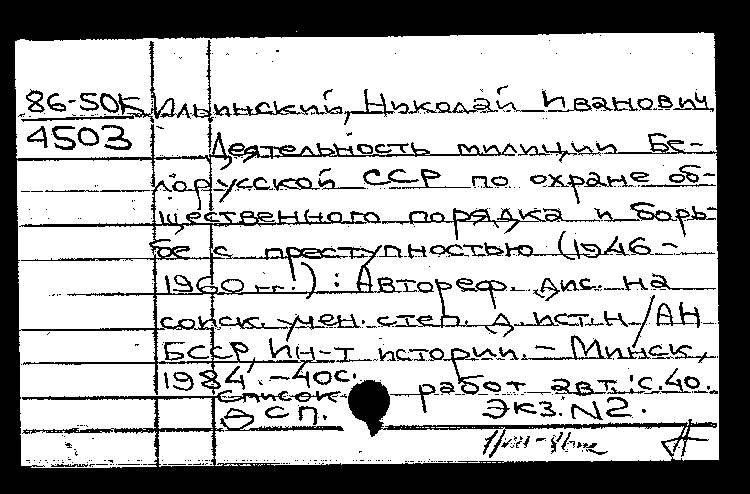 86-50К Ильинский, Николай Иванович
4503 Деятельность милиции Бе-
лорусской ССР по охране об-
щественного порядка и борь-
бе с преступностью (1946-
1960 гг.) : Автореф. дис. на
соиск. учен. степ. д. ист. н/АН
БССР, Ин-т истории. - Минск,
1984. - 40с.
список работ авт.: с.40.
ДСП. Экз. N2.